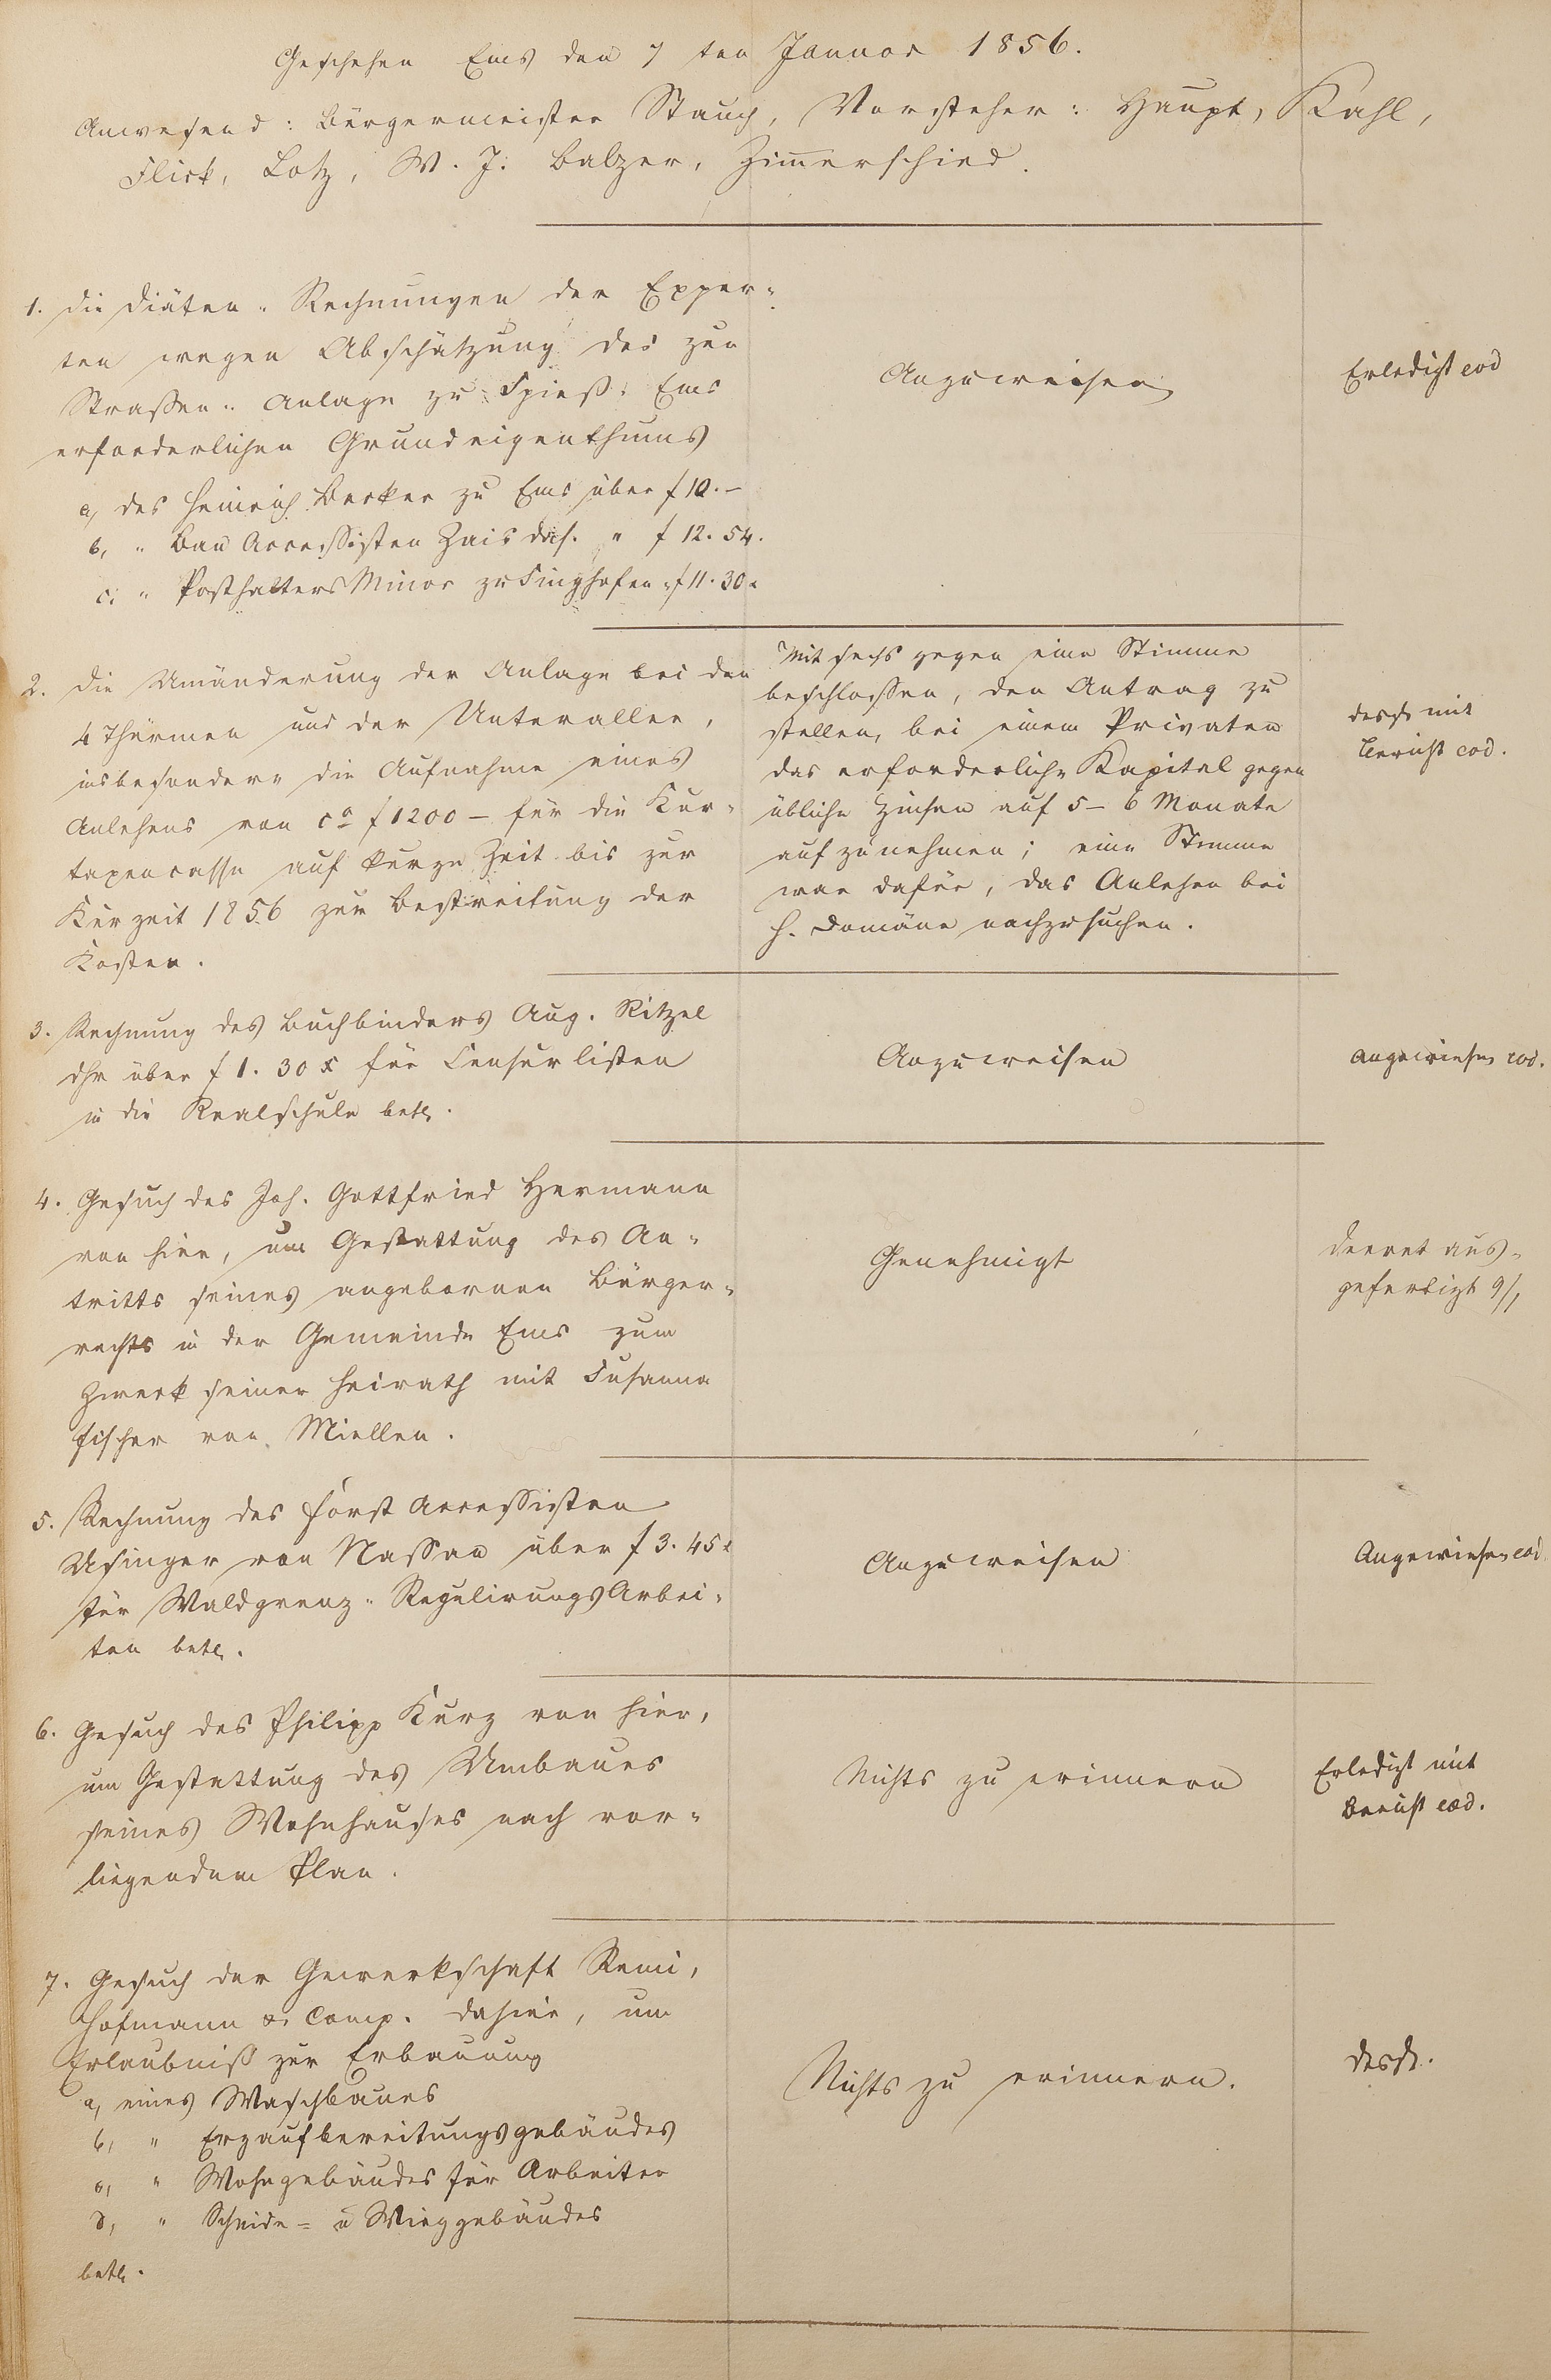 Geschehen Ems den 7 ten Januar 1856.
Anwesend: Bürgermeister Stauch, Vorsteher: Haupt, Kahl,
Flick, Lotz, W. J. Balzer, Zimerschied.
1. Die Diäten-Rechnungen der Exper-
ten wegen Abschätzung des zur
Strassen-Anlage zu Spieß-Ems
erforderlichen Grundeigenthums
a, des Heinrich Becker zu Ems über f 10.-
b, " Bau Accessisten Zais das. " f 12. 54.
c, " Posthalters Minor zu Singhofen " f 11. 30 x
Anzuweisen
Erledigt eod
2. Die Umänderung der Anlage bei den
4 Thürmen und der Unterallee,
insbesondere die Aufnahme eines
Anlehens von ca f 1200 – für die Kur-
taxencasse auf kurze Zeit bis zur
Kurzeit 1856 zur Bestreitung der
Kosten.
Mit sechs gegen eine Stimme
beschlossen, den Antrag zu
stellen, bei einem Privaten
das erforderliche Kapital gegen
übliche Zinsen auf 5 – 6 Monate
aufzunehmen; eine Stimme
war dafür, das Anlehen bei
H. Domäne nachzusuchen.
desgl. mit
Bericht eod.
3. Rechnung des Buchbinders Aug. Ritzel
dhr über f 1. 30 x für Censurlisten
in die Realschule betr.
Anzuweisen
angewiesen eod.
4. Gesuch des Joh. Gottfried Hermann
von hier, um Gestattung des An-
tritts seines angebornen Bürger-
rechts in der Gemeinde Ems zum
Zweck seiner Heirath mit Susanna
Fischer von Miellen.
Genehmigt
Decret aus-
gefertigt 9/1
5. Rechnung des Forst Accessisten
Usinger von Nassau über f 3. 45 x
für Waldgrenz-Regulirungs Arbei-
ten betr.
Anzuweisen
Angewiesen eod.
6. Gesuch des Philipp Kurz von hier,
um Gestattung des Umbaues
seines Wohnhauses nach vor-
liegendem Plan.
Nichts zu erinnern
Erledigt mit
Bericht eod.
7. Gesuch der Gewerkschaft Remi,
Hofmann & Comp. dahier, um
Erlaubniß zur Erbauung
a, eines Waschbaues
b, " Erzaufbereitungsgebäudes
c, " Wohngebäudes für Arbeiter
d, " Scheide- u Wieggebäudes
betr.
Nichts zu erinnern.
desgl.